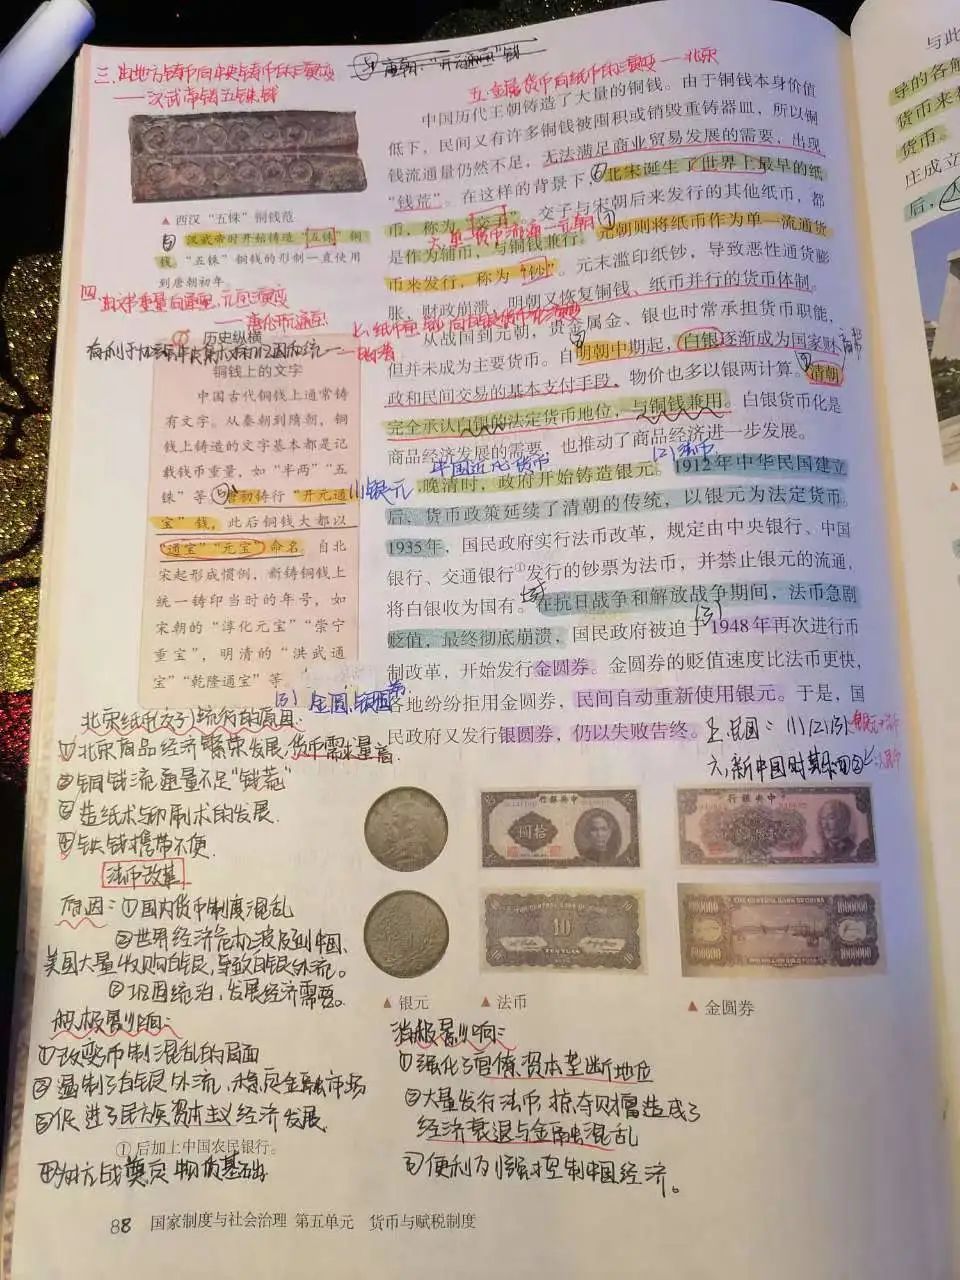 三.由地方铸币向中央铸币的演变
——汉武帝铸五铢钱
唐朝:"开元通宝"钱
▲ 西汉“五铢”铜钱范
汉武帝时开始铸造“五铢”铜
钱。“五铢”铜钱的形制一直使用
到唐朝初年。
四
——唐化开元通宝
历史纵横
铜钱上的文字
中国古代铜钱上通常铸
有文字。从秦朝到隋朝,铜
钱上铸造的文字基本都是记
载钱币重量,如“半两”“五
铢”等。唐初铸行“开元通
宝”钱,此后铜钱大都以
“通宝”“元宝”命名。自北
宋起形成惯例,新铸铜钱上
统一铸印当时的年号,如
宋朝的“淳化元宝”“崇宁
重宝”,明清的“洪武通
宝”“乾隆通宝”等。
五.金属货币向纸币的演变——北宋
中国历代王朝铸造了大量的铜钱。由于铜钱本身价值
低下,民间又有许多铜钱被囤积或销毁重铸器皿,所以铜
钱流通量仍然不足,无法满足商业贸易发展的需要,出现
“钱荒”。在这样的背景下,⑥北宋诞生了世界上最早的纸
币,称为“交子”。交子与宋朝后来发行的其他纸币,都
六.单一货币流通—元朝
是作为辅币,与铜钱兼行。⑦元朝则将纸币作为单一流通货
币来发行,称为“钞”。元末滥印纸钞,导致恶性通货膨
胀,财政崩溃。明朝又恢复铜钱、纸币并行的货币体制。
从战国到元朝,贵金属金、银也时常承担货币职能,
但并未成为主要货币。自明朝中期起,白银逐渐成为国家财
政和民间交易的基本支付手段,物价也多以银两计算。清朝
完全承认白银的法定货币地位,与铜钱兼用。白银货币化是
商品经济发展的需要,也推动了商品经济进一步发展。
中国近代货币
(1)银元
(2)法币
晚清时,政府开始铸造银元。1912年中华民国建立
后,货币政策延续了清朝的传统,以银元为法定货币。
1935年,国民政府实行法币改革,规定由中央银行、中国
银行、交通银行①发行的钞票为法币,并禁止银元的流通,
将白银收为国有。在抗日战争和解放战争期间,法币急剧
贬值,最终彻底崩溃,国民政府被迫于1948年再次进行币
制改革,开始发行金圆券。金圆券的贬值速度比法币更快,
(3)金圆
各地纷纷拒用金圆券,民间自动重新使用银元。于是,国
民政府又发行银圆券,仍以失败告终。
五.民国:(1)(2)(3)
六.新中国时期
北宋纸币(交子)流行的原因
①北宋商品经济繁荣发展,货币需求量高
②铜钱流通量不足"钱荒"
③造纸术印刷术的发展.
④铁钱携带不便.
法币改革
原因:①国内货币制度混乱
②世界经济危机波及到中国.
美国大量收购白银,导致白银外流。
③巩固统治,发展经济需要。
积极影响:
①改变币制混乱的局面
②遏制了白银外流,稳定金融市场
③促进了民族资本主义经济发展.
① 后加上中国农民银行。
④为抗战奠定物质基础
中央银行
拾圆
中央银行
THE CENTRAL BANK OF CHINA
10
TEN YUAN
THE CENTRAL BANK OF CHINA
1000000
▲ 银元
▲ 法币
▲ 金圆券
消极影响:
①强化了官僚资本垄断地位
②大量发行法币,掠夺财富造成了
经济衰退与金融混乱
③便利列强控制中国经济。
88 国家制度与社会治理 第五单元 货币与赋税制度
与此
导的各解
货币来
货币。
庄成立
后,